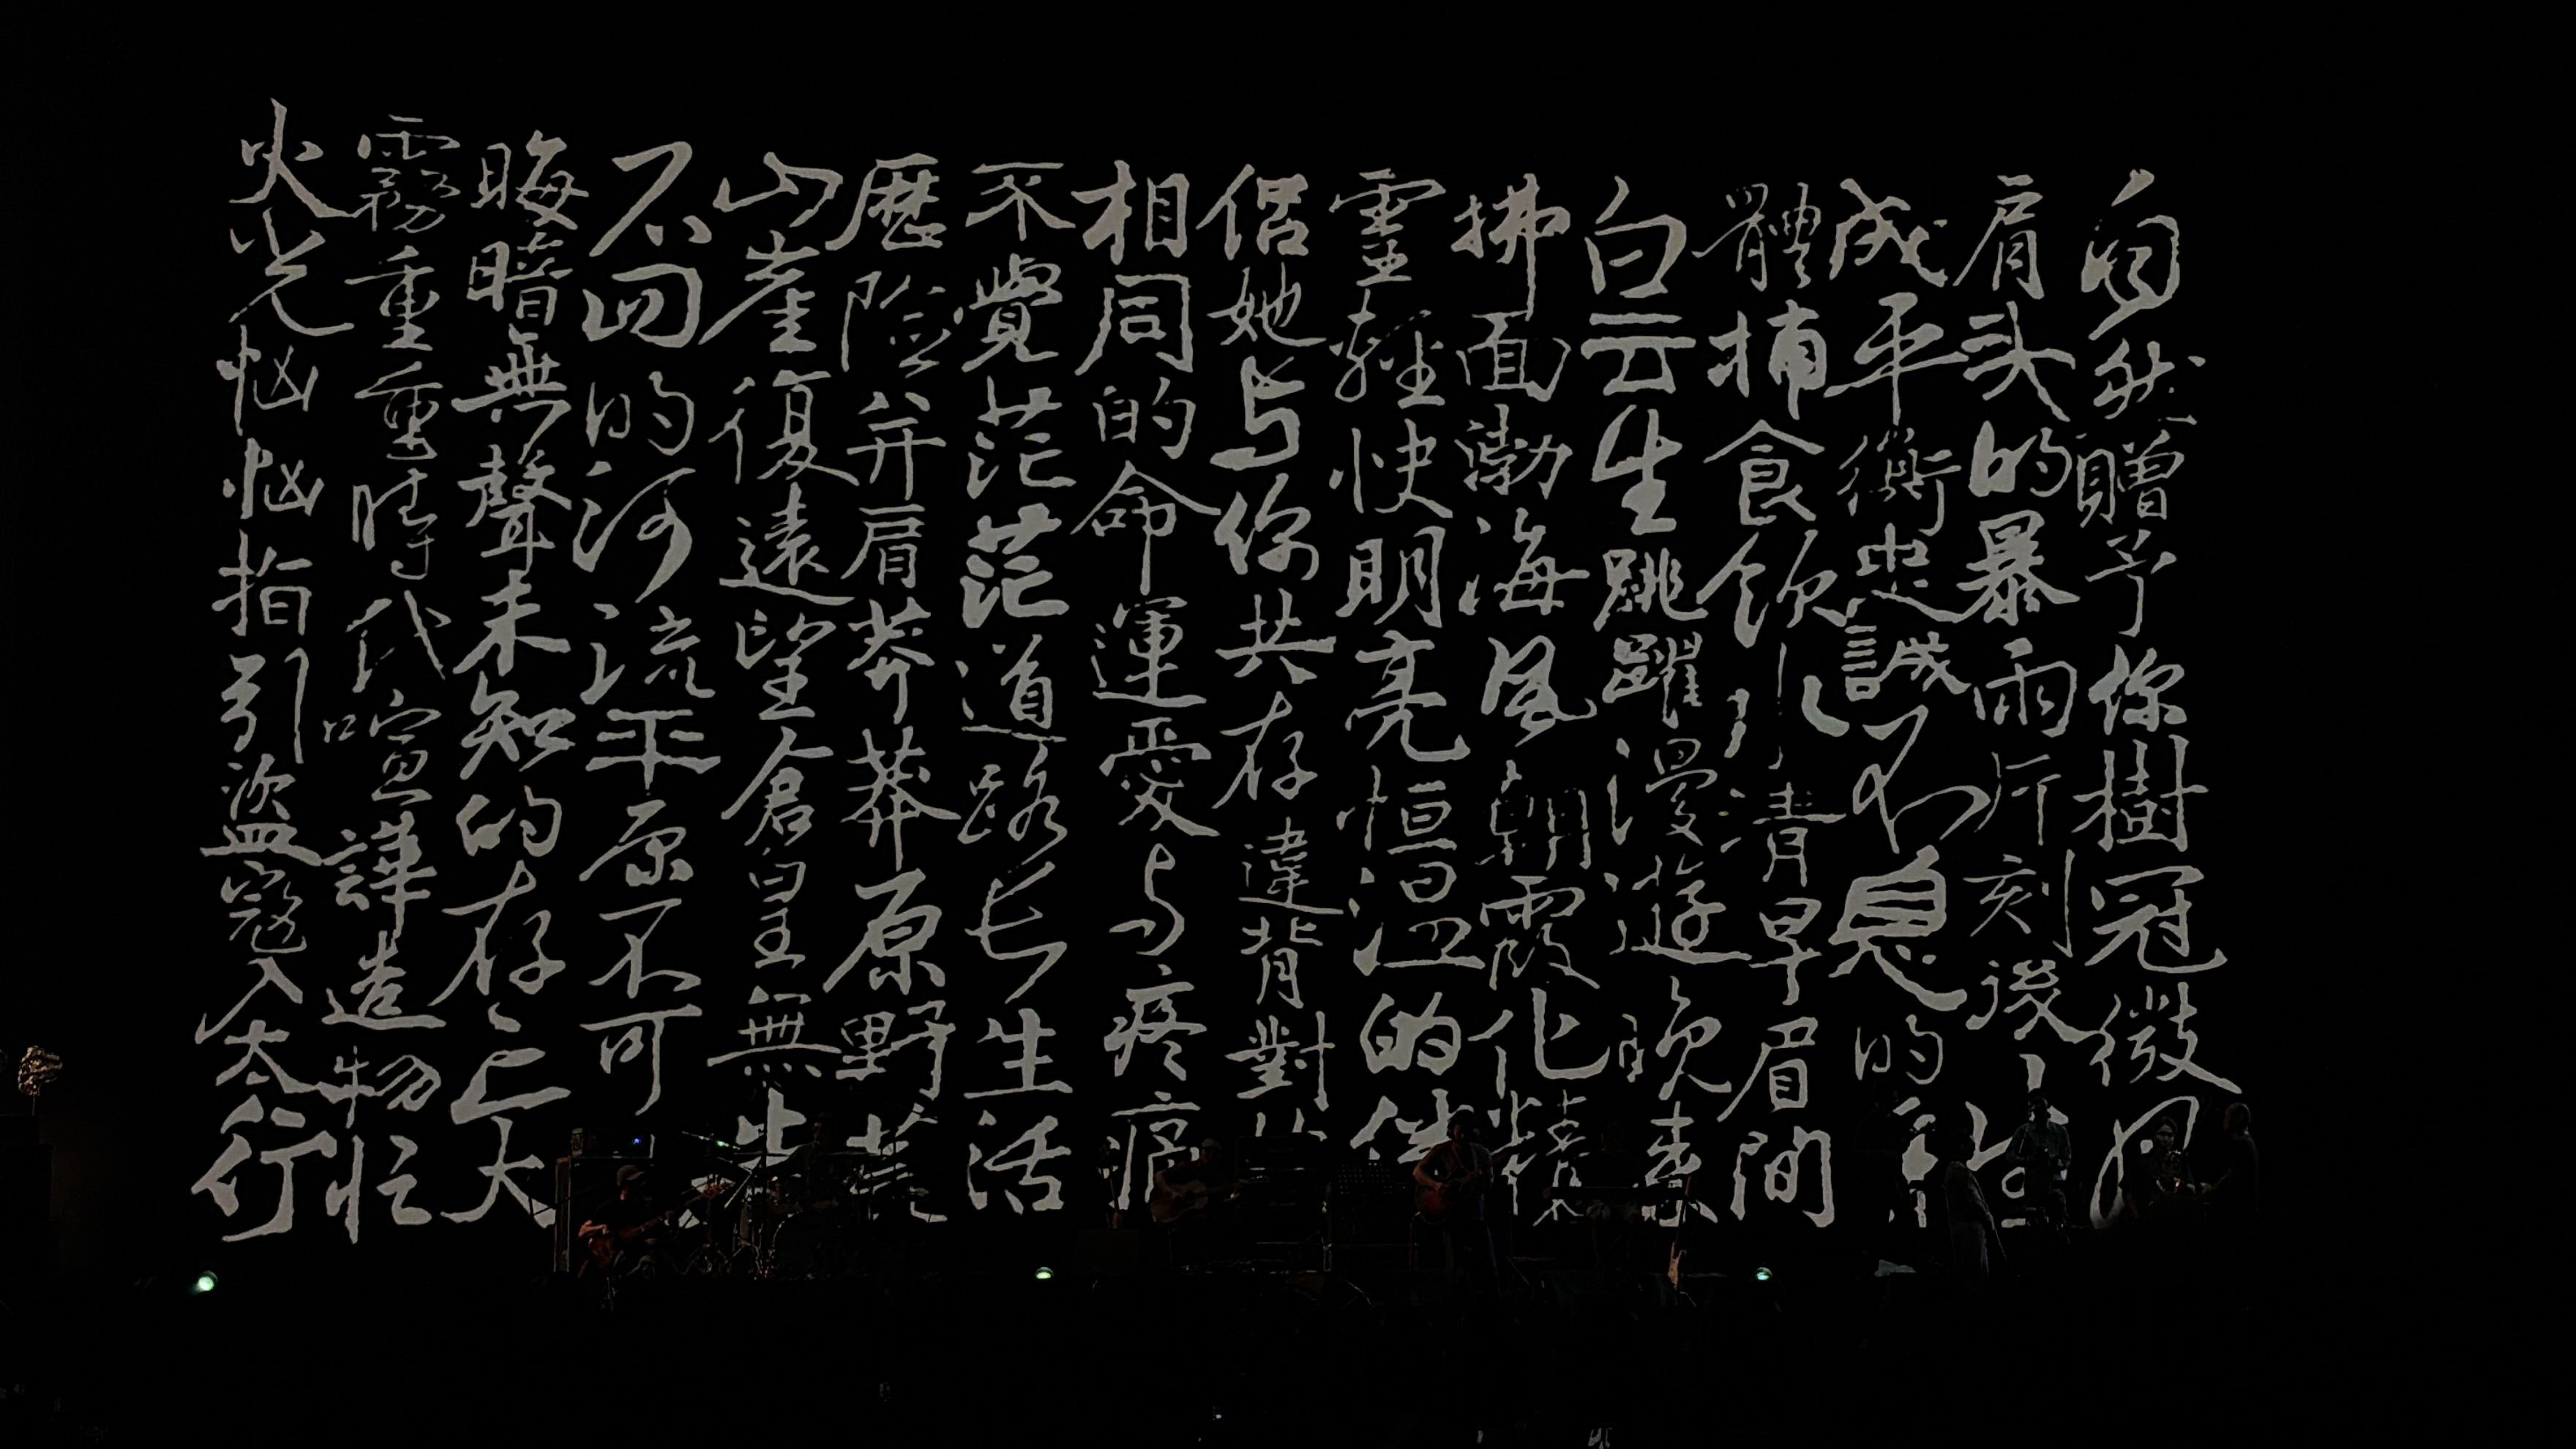 自然贈予你樹冠微风
肩头的暴雨片刻後生
成平衡忠誠不息的
體捕食飲水清早眉間
白云生跳躍漫遊晚来
拂面渤海风朝霞化精
靈輕快明亮恒温的伴
侣她与你共存違背對
相同的命運愛与疼痛
不覺茫茫道路长生活
歷險并肩莽莽原野荒
山崖復遠望倉皇無
不回的河流平原不可
晦暗無聲未知的存亡大
霧重重時代喧譁造物忙
火光恼恼指引盜寇入太行